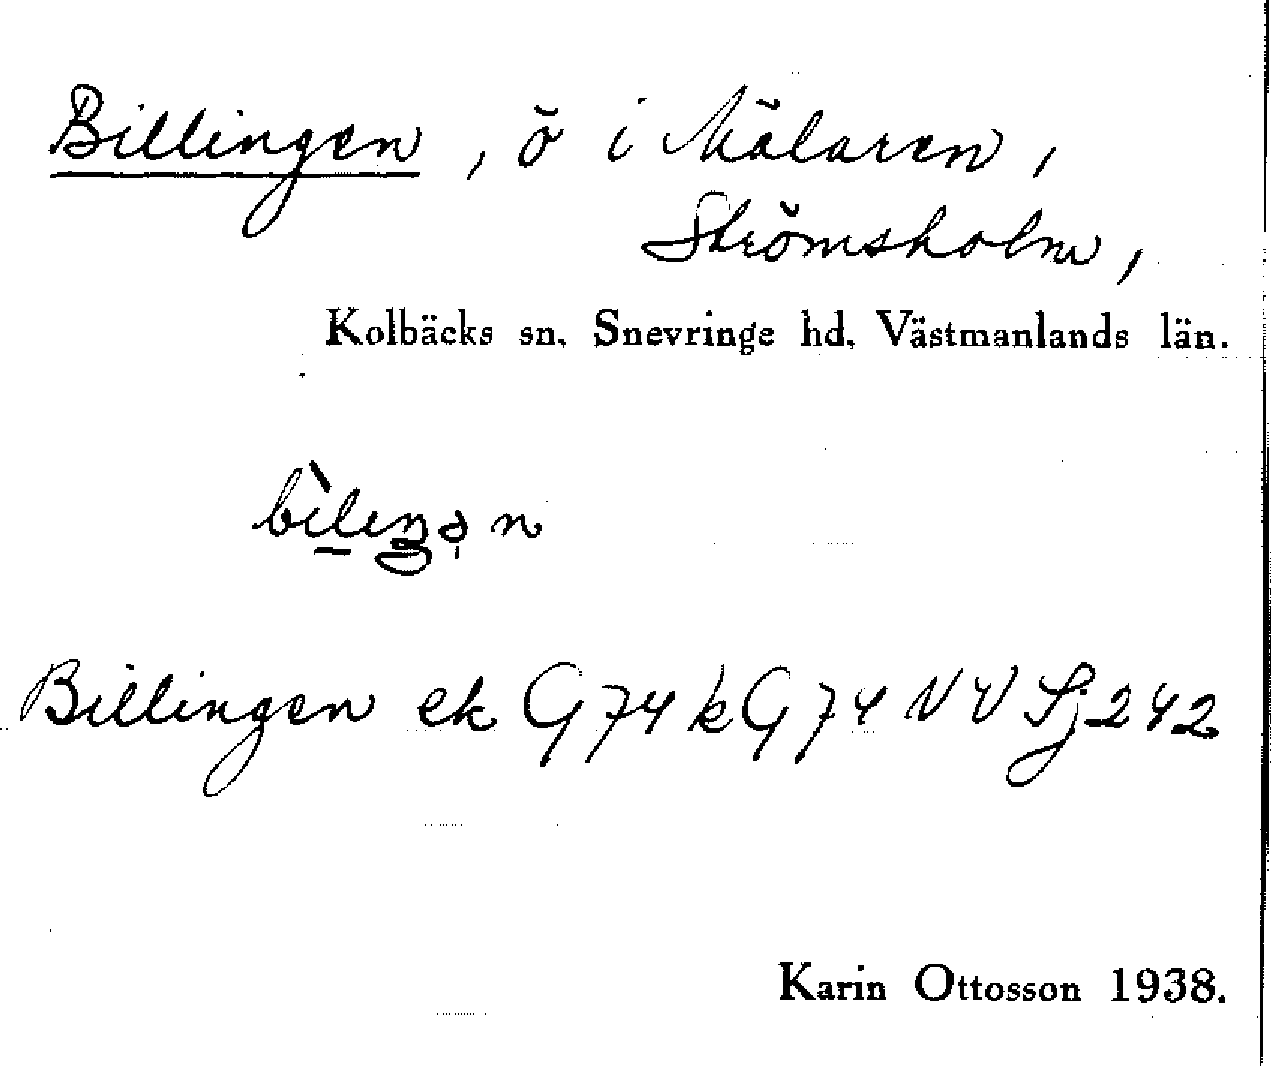 Billingen, ö i Mälaren,
Strömsholm,
Kolbäcks sn. Snevringe hd. Västmanlands län.
Billingen ek G 74 k G 74 NV Sj 242
Karin Ottosson 1938.